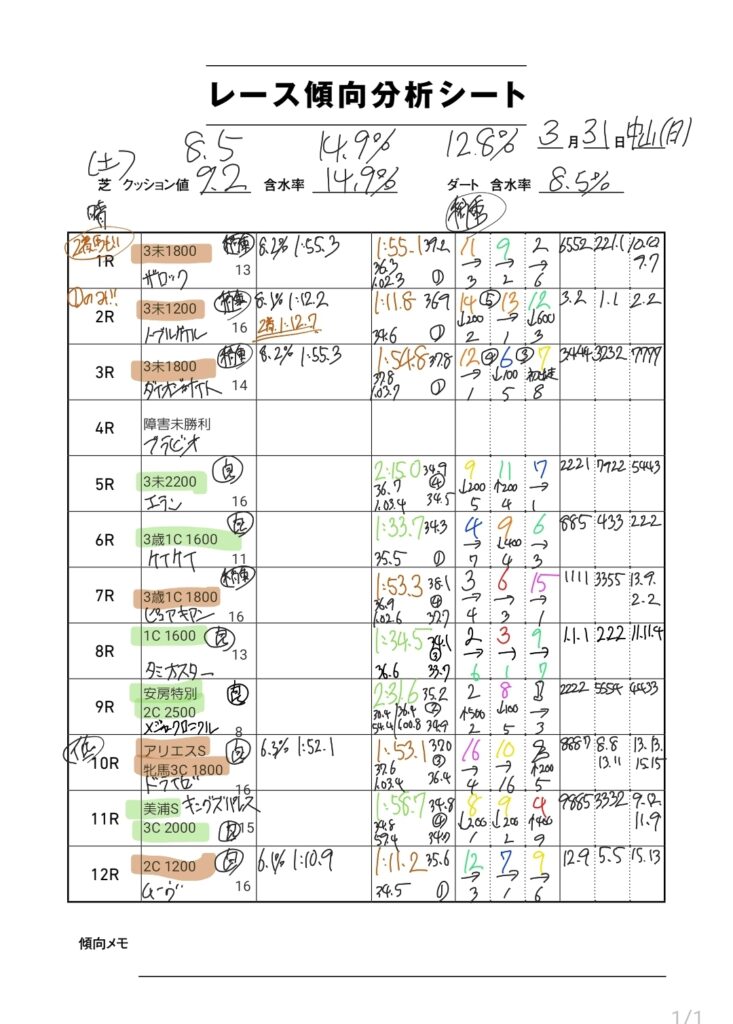 レース傾向分析シート
8.5 14.9% 12.8% 3月31日 中山(日)
(土)
芝 クッション値 9.2 含水率 14.9% ダート 含水率 8.5%
晴
1R 3末1800 13 8.2% 1:55.3 1:55.1 39.2 11 9 2 6552 221.1 10.10
ガロック 36.3 1.02.3 ① → → → 3 2 6 9.7
2R 3末1200 16 8.1% 1:12.2 1:11.8 36.9 14 ⑤ 13 12 3.2 1.1 2.2
2歳 1:12.7 34.6 ① ↓200 → ↓600 2 1 3
3R 3末1800 14 8.2% 1:55.3 1:54.8 37.8 12 ④ 6 ③ 7 3444 3232 7777
37.8 1.03.7 ① → ↓100 初出走 1 5 8
4R 障害未勝利
5R 3末2200 良 16 2:15.0 34.9 9 11 7 2221 7922 5443
エラン 36.7 ④ 1.03.4 34.5 ↓200 ↑200 → 5 4 1
6R 3歳1C 1600 良 11 1:33.7 34.3 4 9 6 885 433 222
ケイケイ 35.5 ① → ↓400 → 7 4 3
7R 3歳1C 1800 16 1:53.3 38.1 3 6 15 1111 3355 13.9.
ピュアキアン 36.9 ④ 1.02.6 37.7 → → → 4 3 1 2.2
8R 1C 1600 良 13 1:34.5 34.1 2 3 9 1.1.1 222 11.11.4
36.6 ③ 33.7 → → → 6 1 7
9R 安房特別 良 2:31.6 35.2 2 8 2222 5554 4433
2C 2500 8 30.4 36.4 ② 54.4 1.00.8 34.9 ↑500 ↓100 → 2 5 3
メジャークロニクル
10R アリエスS 良 6.3% 1:52.1 1:53.1 37.0 16 10 8 8887 8.8 13.13.
牝馬3C 1800 16 37.6 ③ 1.03.4 36.4 → → ↑200 4 16 5 13.11 15.15
11R 美浦S キングズパレス 1:58.7 34.8 8 9 4 9885 3332 9.12
3C 2000 良 15 34.8 ④ 59.4 34.7 ↓200 ↓200 ↑400 1 2 9 11.9
12R 2C 1200 良 16 6.1% 1:10.9 1:11.2 35.6 12 7 9 12.9 5.5 15.13
ムーヴ 34.5 ① → → → 3 1 6
傾向メモ
1/1